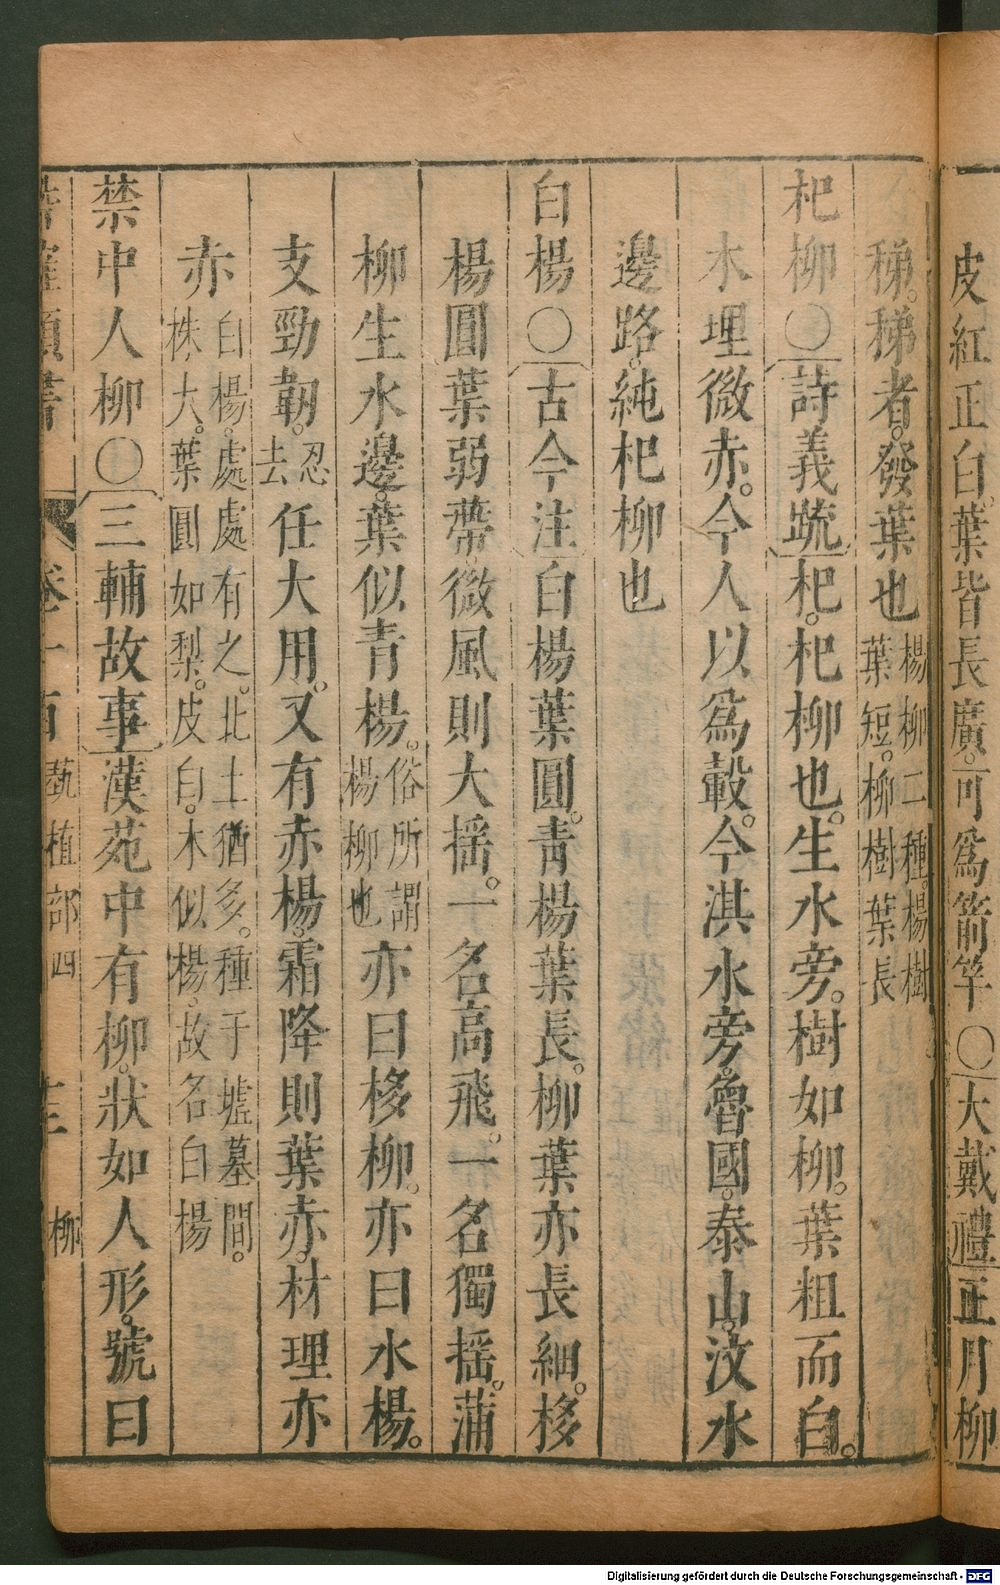 皮紅正白。葉皆長廣。可爲箭竿〇大戴禮正月柳
稊。稊者。發葉也楊柳二種。楊樹葉短。柳樹葉長
杞柳〇詩義䟽杞。杞柳也。生水旁。樹如柳。葉粗而白。
木理微赤。今人以爲轂。今淇水旁。魯國。泰山。汶水
邊路。純杞柳也
白楊〇古今注白楊葉圓。青楊葉長。柳葉亦長細。栘
楊圓葉弱蔕。微風則大搖。一名高飛。一名獨搖。蒲
柳生水邊。葉似青楊。俗所謂楊柳也亦曰栘柳。亦曰水楊。
支勁韌。忍去任大用。又有赤楊。霜降則葉赤。材理亦
赤白楊。處處有之。北土猶多。種于墟墓間。株大。葉圓如梨。皮白。木似楊。故名白楊
禁中人柳〇三輔故事漢苑中有柳。狀如人形。號曰
卷一百 蓺植部四 柳
Digitalisierung gefördert durch die Deutsche Forschungsgemeinschaft - DFG